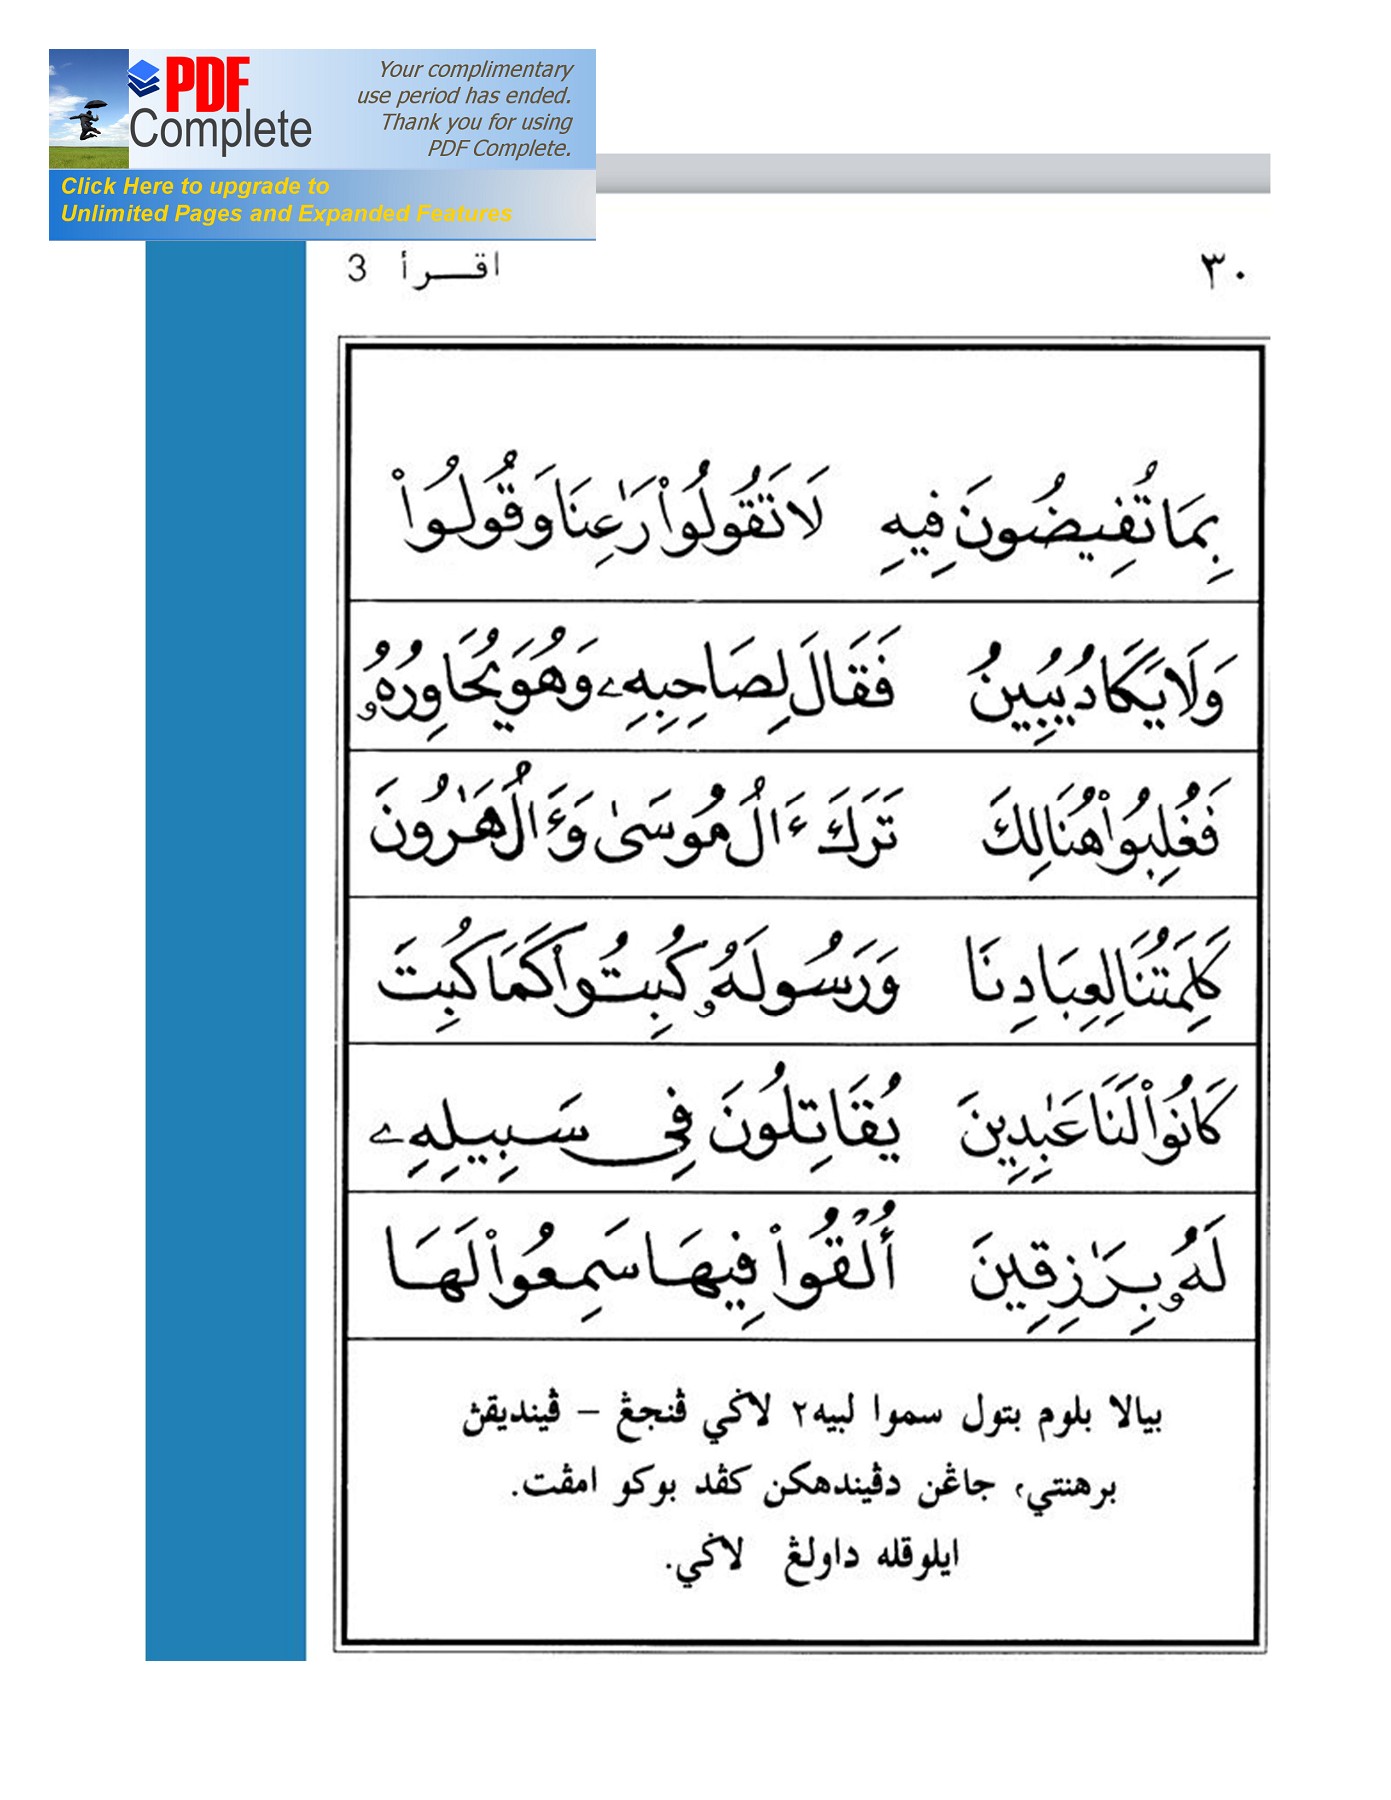 PDF Complete
Your complimentary
use period has ended.
Thank you for using
PDF Complete.
Click Here to upgrade to
Unlimited Pages and Expanded Features
٣٠ اقـــرأ 3
بِمَا تُفِيضُونَ فِيهِ لَا تَقُولُوا۟ رَٰعِنَا وَقُولُوا۟
وَلَا يَكَادُ يُبِينُ فَقَالَ لِصَاحِبِهِۦ وَهُوَ يُحَاوِرُهُۥ
فَغُلِبُوا۟ هُنَالِكَ تَرَكَ ءَالُ مُوسَىٰ وَءَالُ هَٰرُونَ
كَلِمَتُنَا لِعِبَادِنَا وَرَسُولَهُۥ كُبِتُوا۟ كَمَا كُبِتَ
كَانُوا۟ لَنَا عَٰبِدِينَ يُقَاتِلُونَ فِى سَبِيلِهِۦ
لَهُۥ بِرَٰزِقِينَ أُلْقُوا۟ فِيهَا سَمِعُوا۟ لَهَا
بيالا بلوم بتول سموا لبيه٢ لاݢي ڤنجڠ – ڤينديقڽ
برهنتي، جاڠن دڤيندهكن كڤد بوكو امڤت.
ايلوقله داولڠ لاݢي.